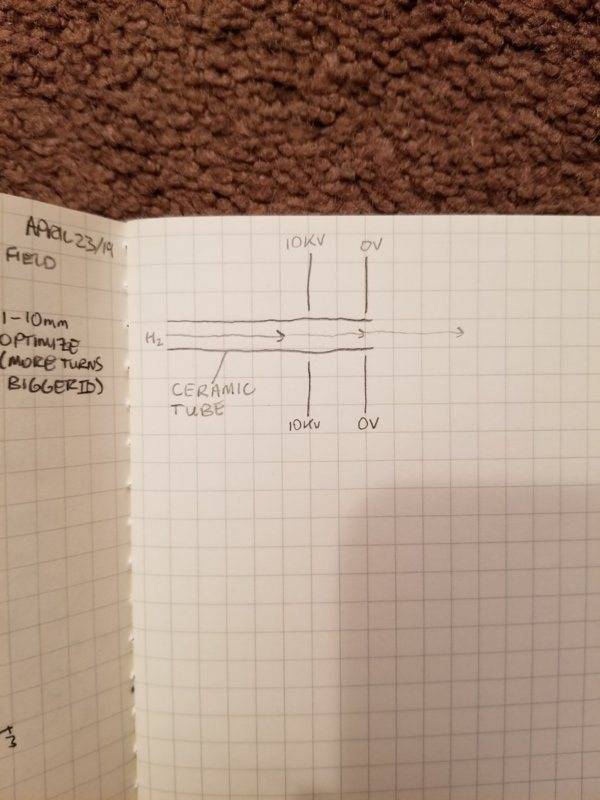 APRIL 23/19
FIELD
1-10mm
OPTIMIZE
(MORE TURNS
BIGGER ID)
3
10KV 0V
H2
CERAMIC
TUBE
10KV 0V